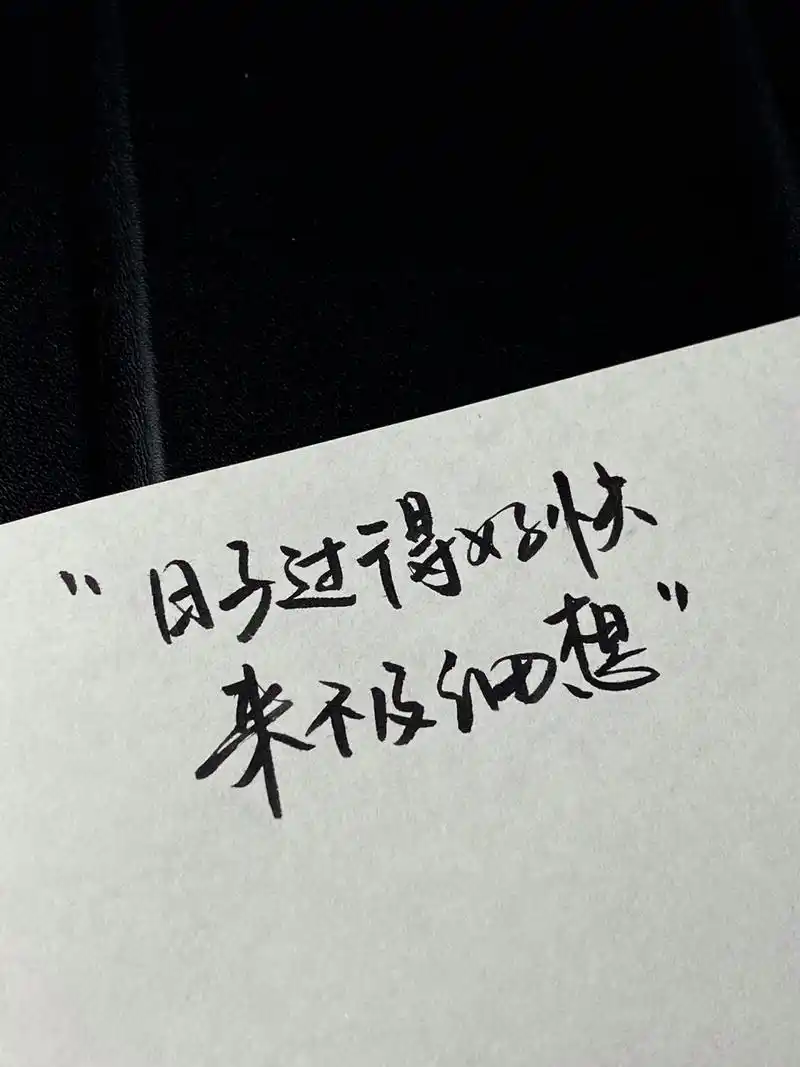 "日子过得好快
来不及细想"